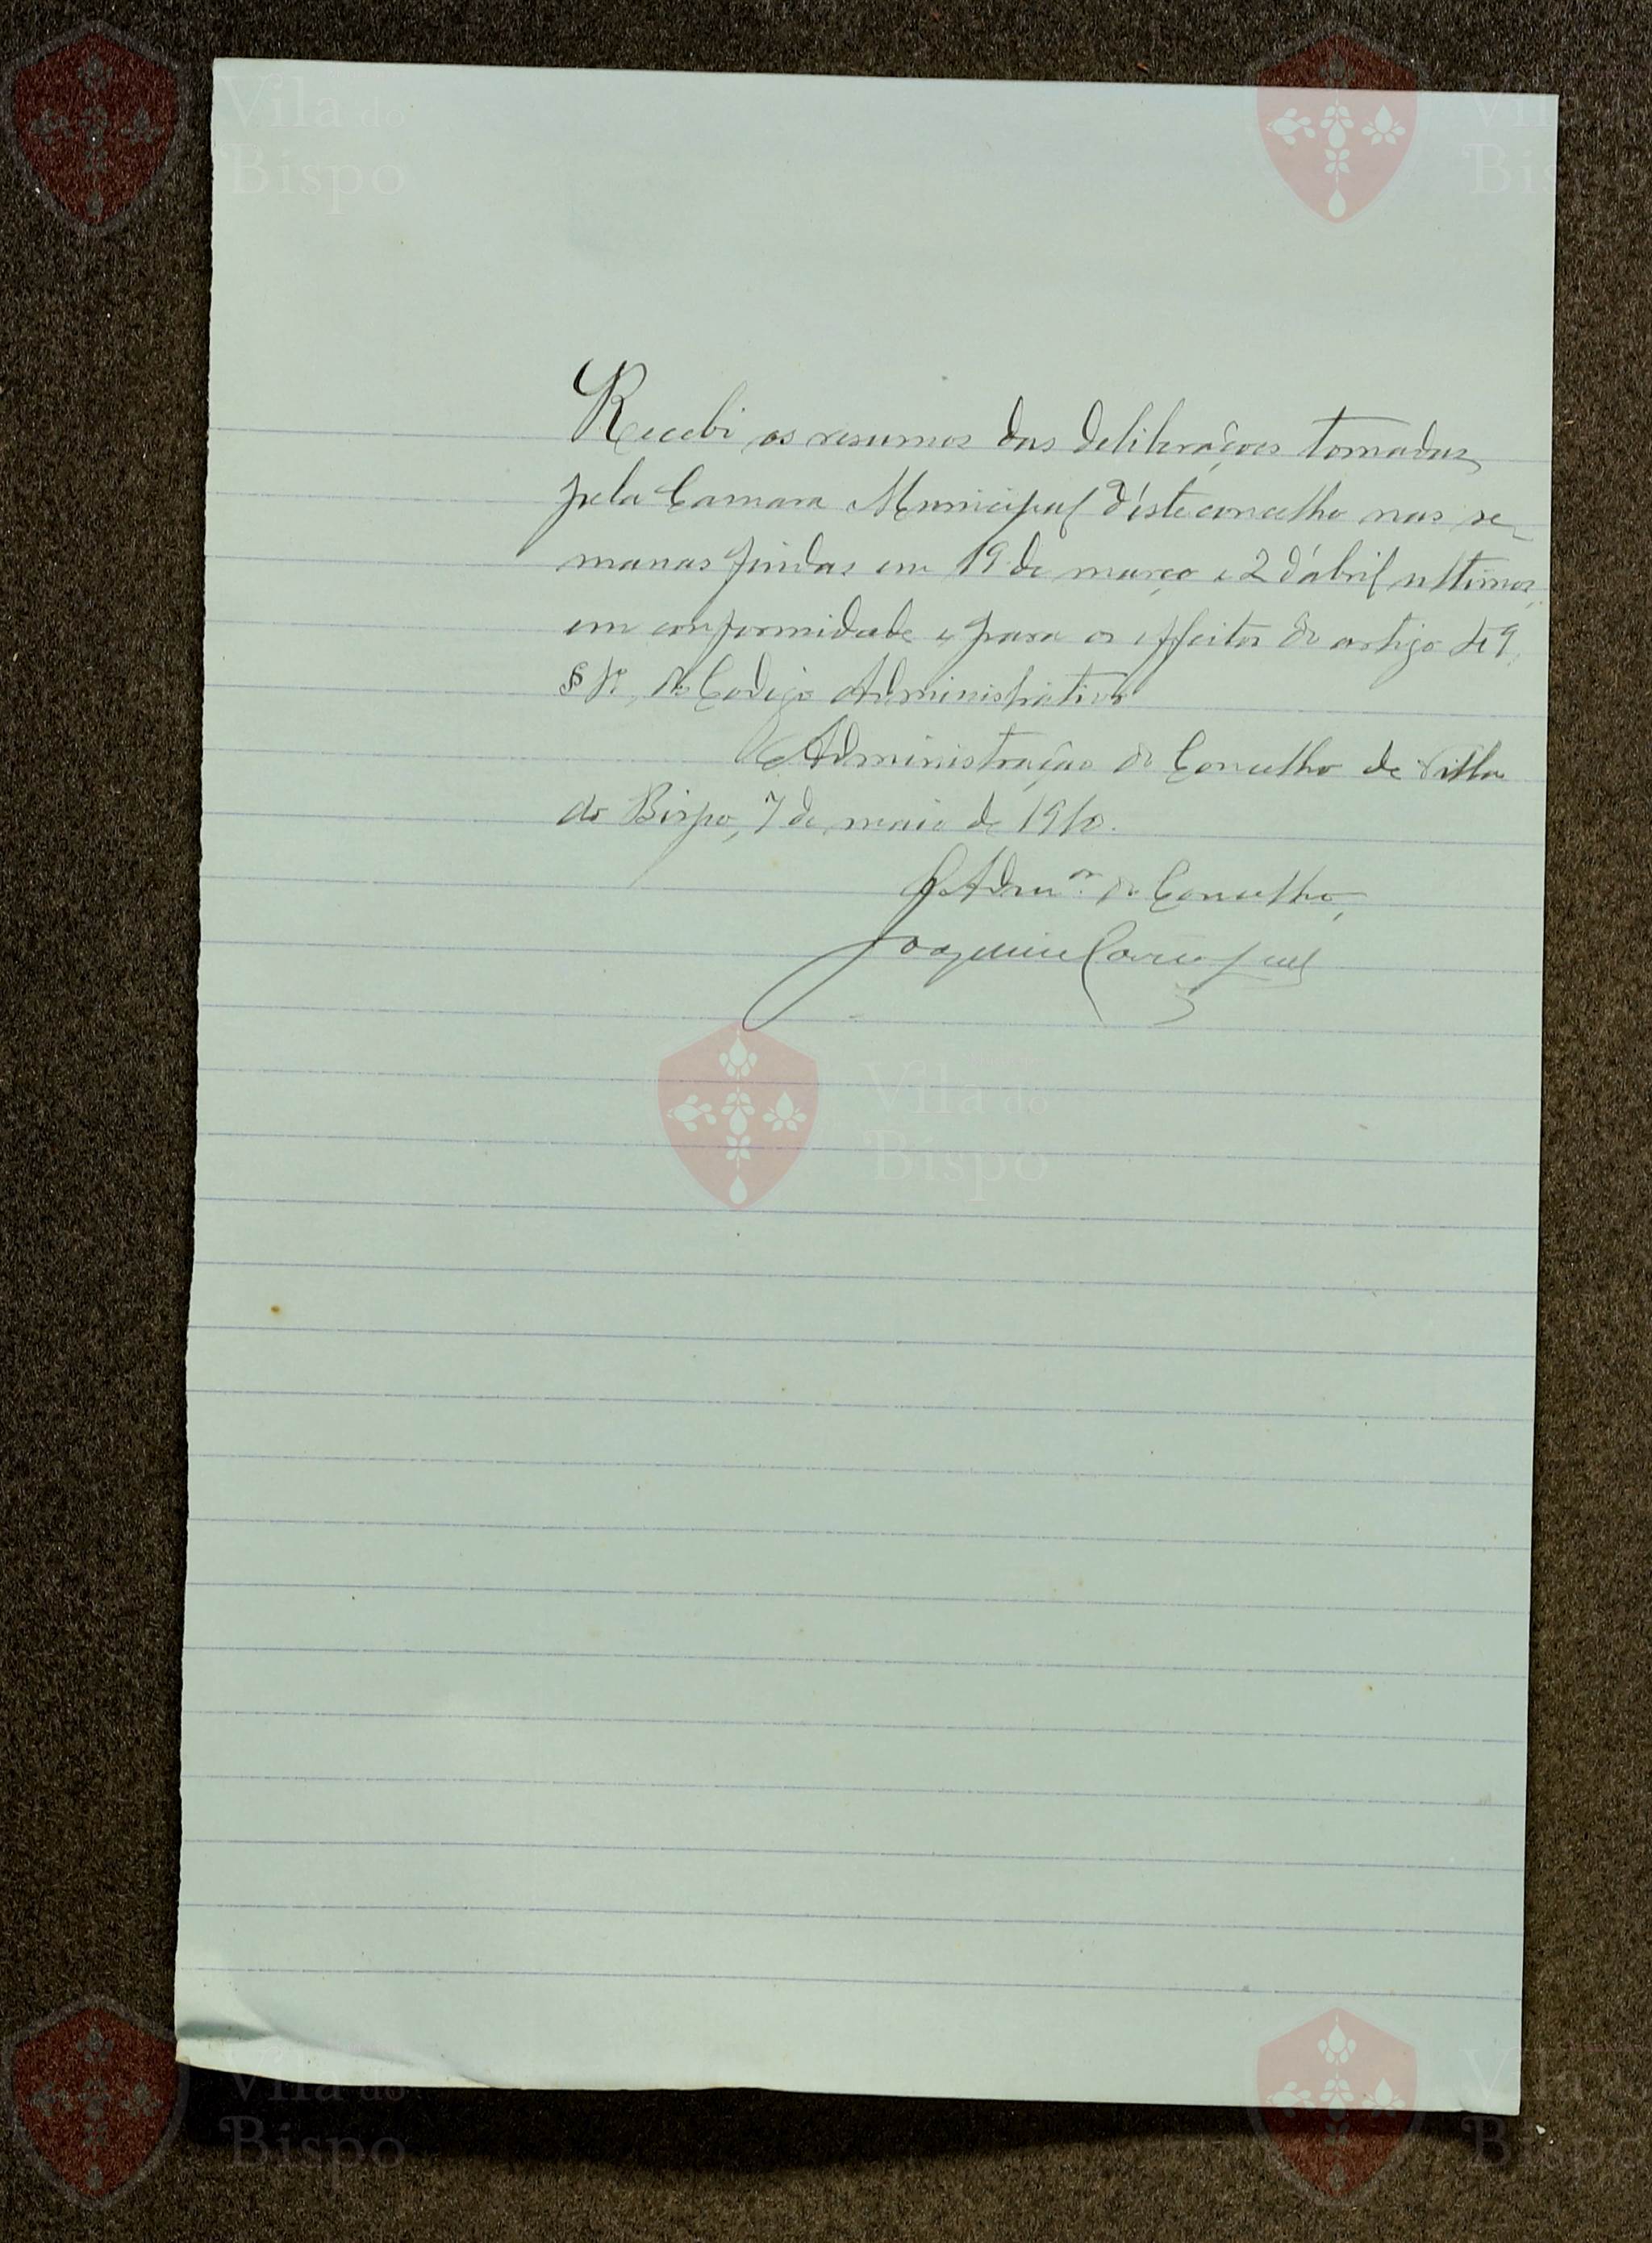 Recebi os resumos das deliberações tomadas
pela Camara Municipal d'este concelho nas se-
manas findas em 19 de março e 2 d'abril ultimos,
em conformidade e para os effeitos do artigo 49
§ 1º, do Codigo Administrativo
Administração do Concelho de Villa
do Bispo, 7 de maio de 1910.
O Adm.or do Concelho,
Joaquim
Vila do
Bispo
Vila do
Bispo
Vila do
Bispo